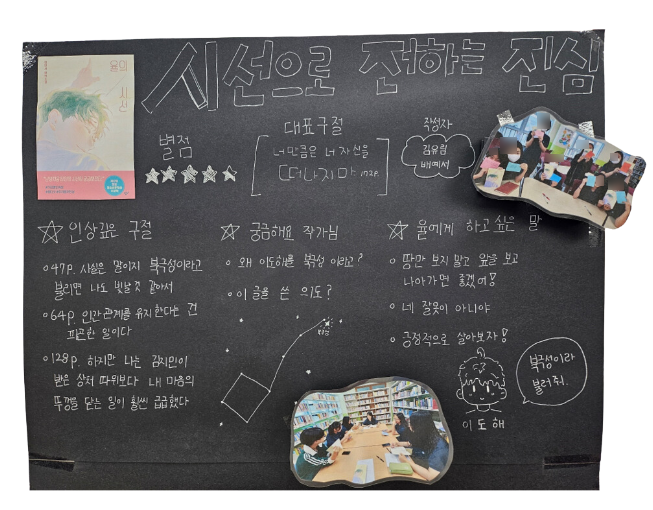 시선으로 전하는 진심
율의 시선
별점
대표구절
너만큼은 너 자신을
떠나지마
작성자
김유림
배예서
인상깊은 구절
47p. 사실은 말이지 북극성이라고
불리면 나도 빛날 것 같아서
64p. 인간관계를 유지한다는 건
피곤한 일이다
128p. 하지만 나는 김지민이
받은 상처 따위보다 내 마음의
뚜껑을 닫는 일이 훨씬 급급했다
궁금해요 작가님
왜 이도해를 북극성 이라고?
이 글을 쓴 의도?
율에게 하고 싶은 말
땅만 보지 말고 앞을 보고
나아가면 좋겠어!
네 잘못이 아니야
긍정적으로 살아보자!
북극성이라
불러줘.
이도해